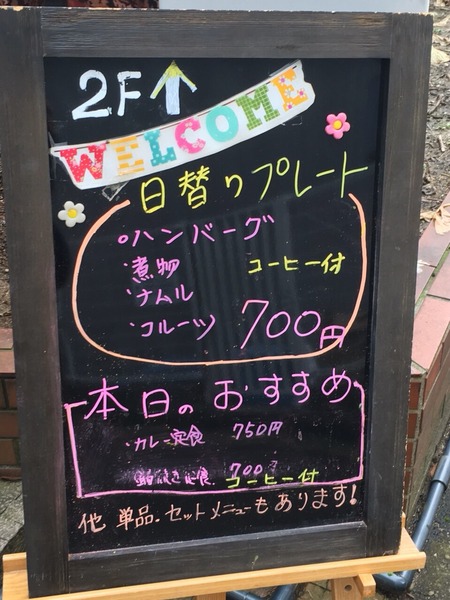 2F↑
WELCOME
日替りプレート
○ハンバーグ
・煮物 コーヒー付
・ナムル
・フルーツ 700円
本日のおすすめ
・カレー定食 750円
700
コーヒー付
他 単品・セットメニューもあります!